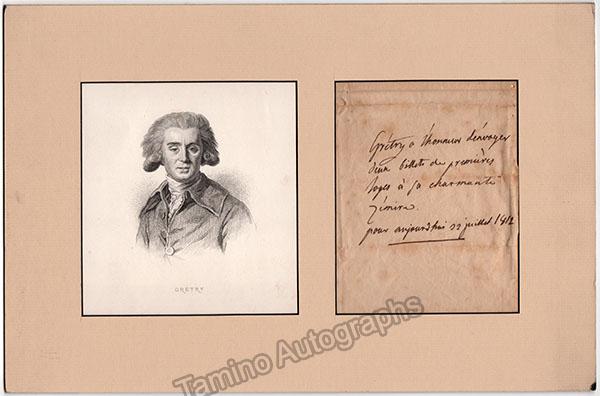 GRETRY
Grétry a l'honneur d'envoyer
deux billets de premières
loges à sa charmante
Zémire.
pour aujourd'hui 22 juillet 1812
Tamino Autographs